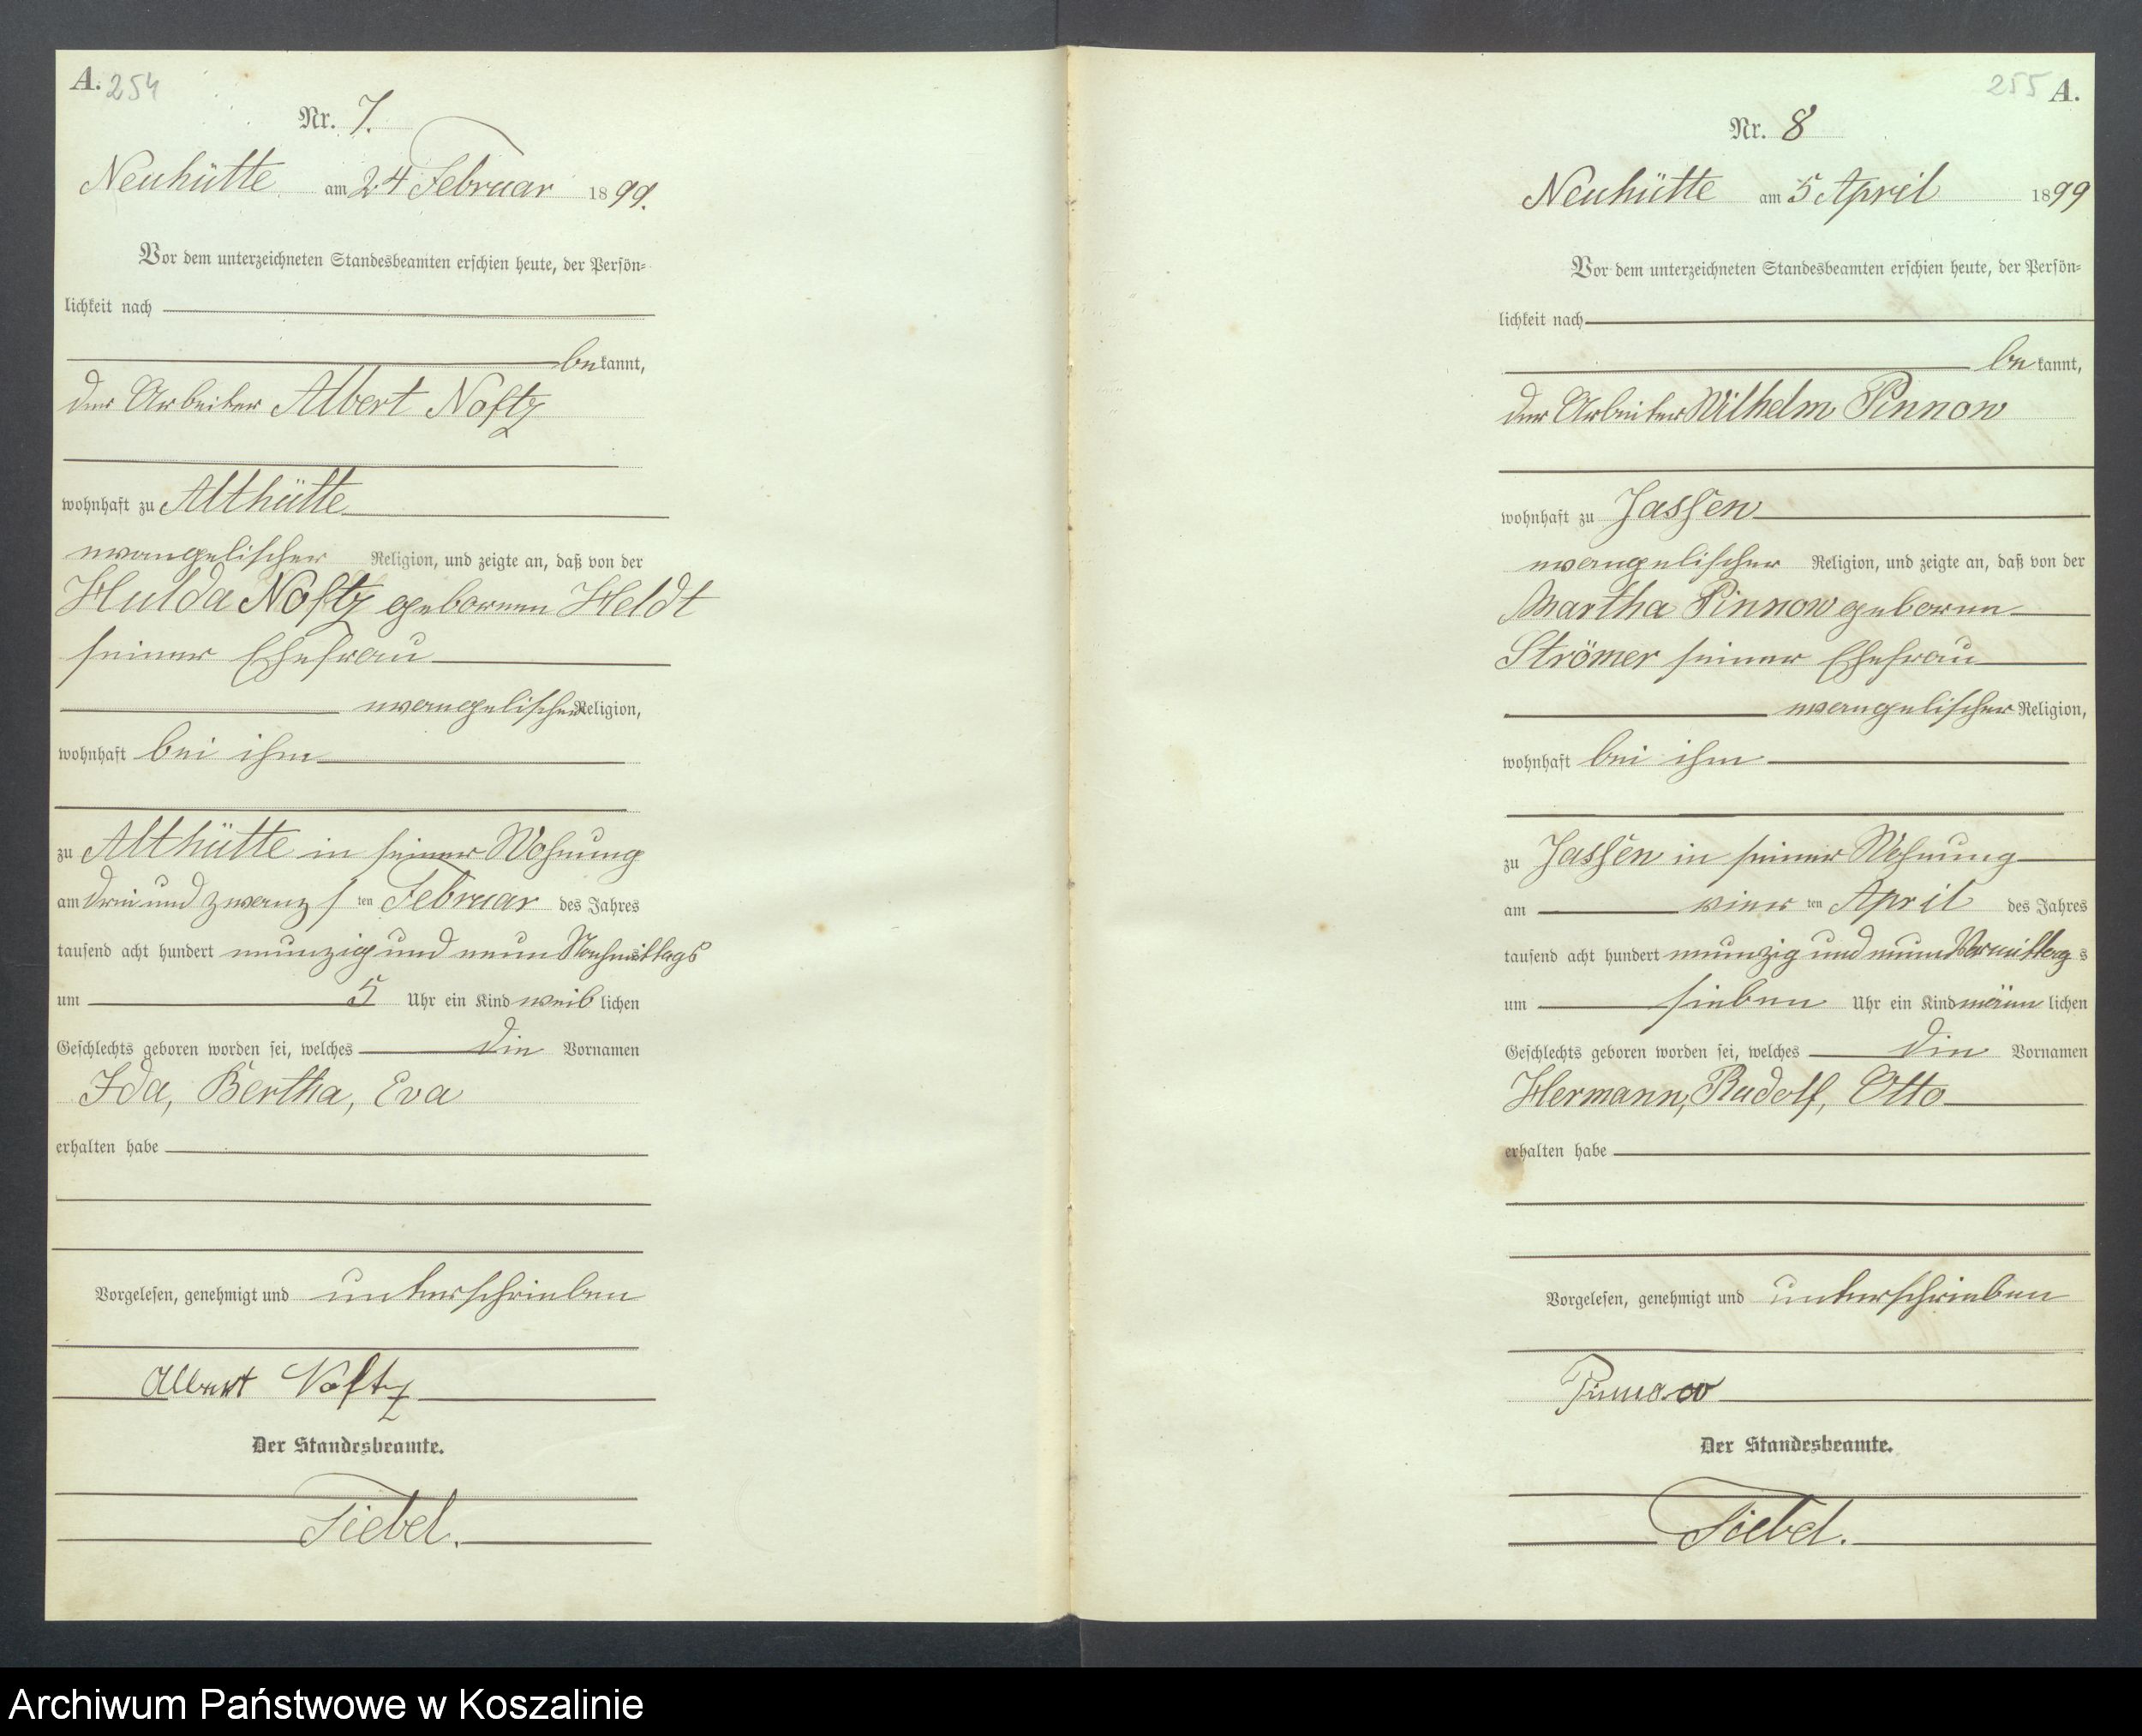 A. 254
Nr. 7.
Neuhütte am 24 Februar 1899.
Vor dem unterzeichneten Standesbeamten erschien heute, der Persön-
lichkeit nach
bekannt,
der Arbeiter Albert Noftz
wohnhaft zu Althütte
evangelischer Religion, und zeigte an, daß von der
Hulda Noftz geborenen Heldt
seiner Ehefrau
evangelischer Religion,
wohnhaft bei ihm
zu Althütte in seiner Wohnung
am drei und zwanzigsten Februar des Jahres
tausend acht hundert neunzig und neun Nachmittags
um 5 Uhr ein Kind weiblichen
Geschlechts geboren worden sei, welches die Vornamen
Ida, Bertha, Eva
erhalten habe
Vorgelesen, genehmigt und unterschrieben
Albert Noftz
Der Standesbeamte.
Tiebel.
255 A.
Nr. 8
Neuhütte am 5 April 1899
Vor dem unterzeichneten Standesbeamten erschien heute, der Persön-
lichkeit nach
bekannt,
der Arbeiter Wilhelm Pinnow
wohnhaft zu Jassen
evangelischer Religion, und zeigte an, daß von der
Martha Pinnow geborene
Strömer seiner Ehefrau
evangelischer Religion,
wohnhaft bei ihm
zu Jassen in seiner Wohnung
am vierten April des Jahres
tausend acht hundert neunzig und neun Vormittags
um sieben Uhr ein Kind männlichen
Geschlechts geboren worden sei, welches die Vornamen
Hermann, Rudolf, Otto
erhalten habe
Vorgelesen, genehmigt und unterschrieben
Pinnow
Der Standesbeamte.
Tiebel.
Archiwum Państwowe w Koszalinie